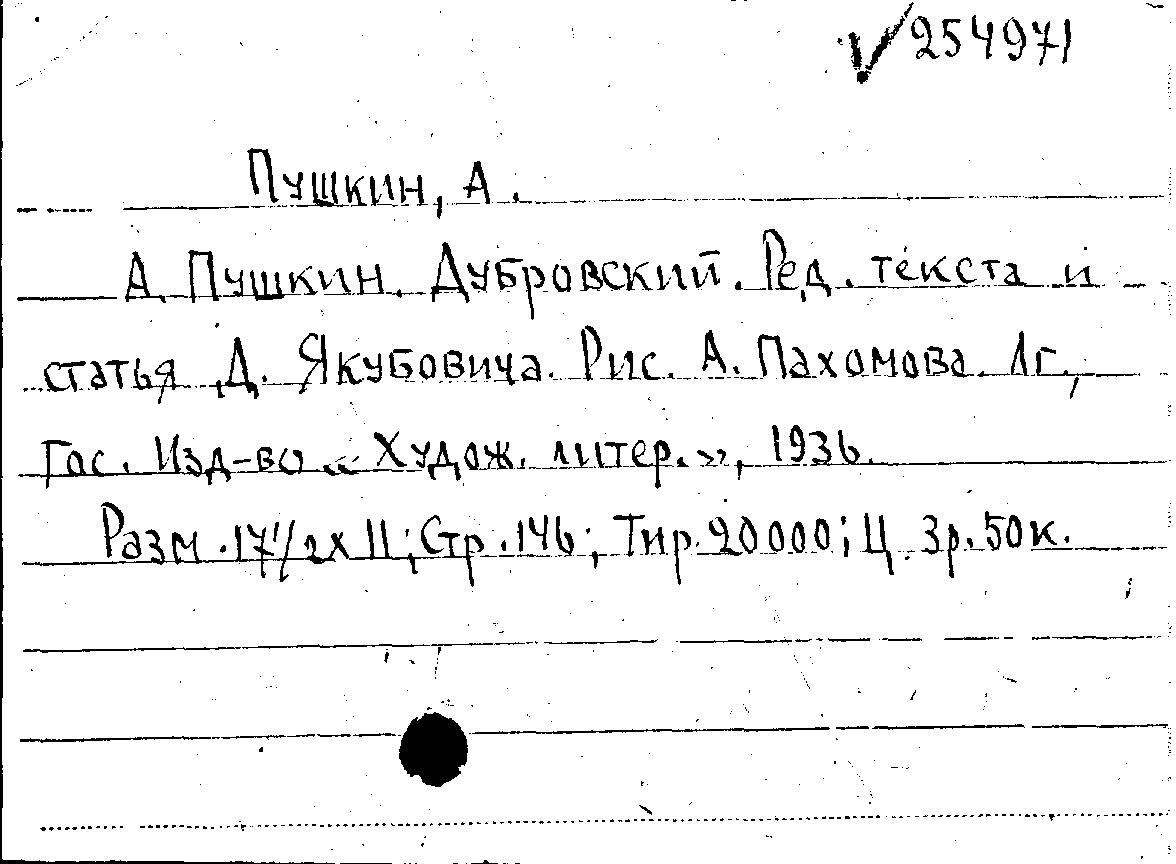 √254971
Пушкин, А.
А. Пушкин. Дубровский. Ред. текста и
статья Д. Якубовича. Рис. А. Пахомова. Лг.,
Гос. Изд-во «Худож. литер.», 1936.
Разм. 17 1/2 х 11; Стр. 146; Тир. 20000; Ц. 3р. 50к.